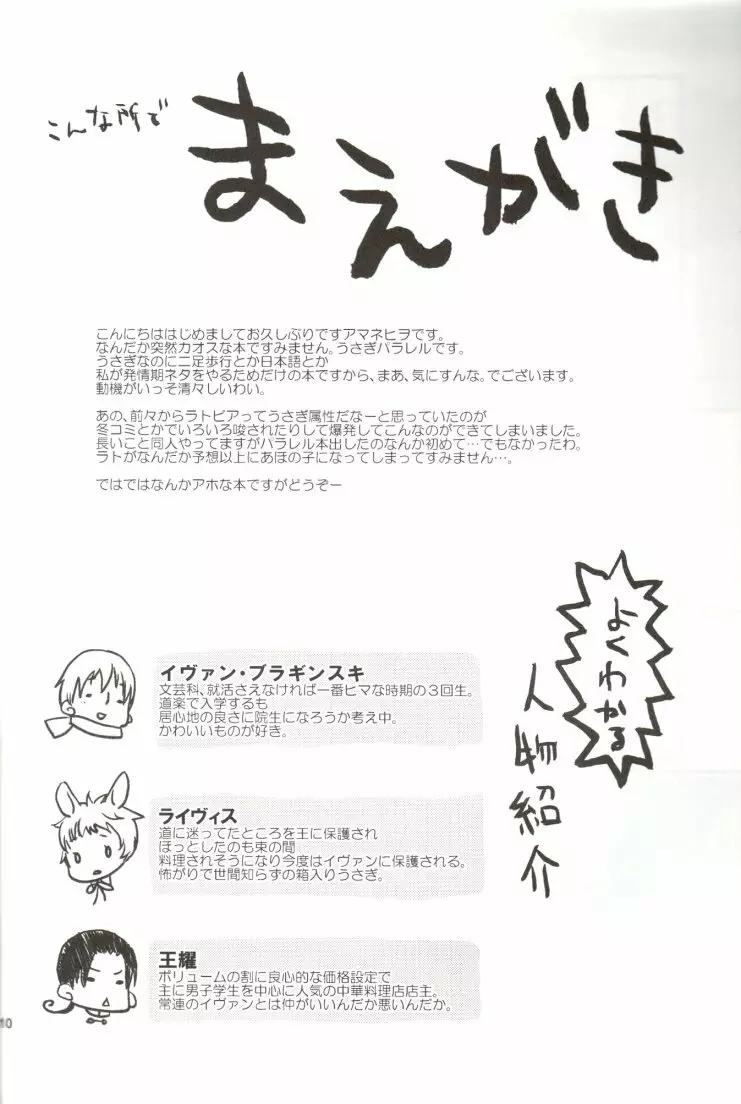 こんな所で
まえがき
こんにちははじめましてお久しぶりですアマネヒヲです。
なんだか突然カオスな本ですみません。うさぎパラレルです。
うさぎなのに二足歩行とか日本語とか
私が発情期ネタをやるためだけの本ですから、まあ、気にすんな。でございます。
動機がいっそ清々しいわい。
あの、前々からラトビアってうさぎ属性だなーと思っていたのが
冬コミとかでいろいろ唆されたりして爆発してこんなのができてしまいました。
長いこと同人やってますがパラレル本出したのなんか初めて…でもなかったわ。
ラトがなんだか予想以上にあほの子になってしまってすみません…。
ではではなんかアホな本ですがどうぞー
よくわかる
人物紹介
イヴァン・ブラギンスキ
文芸科、就活さえなければ一番ヒマな時期の３回生。
道楽で入学するも
居心地の良さに院生になろうか考え中。
かわいいものが好き。
ライヴィス
道に迷ってたところを王に保護され
ほっとしたのも束の間
料理されそうになり今度はイヴァンに保護される。
怖がりで世間知らずの箱入りうさぎ。
王耀
ボリュームの割に良心的な価格設定で
主に男子学生を中心に人気の中華料理店店主。
常連のイヴァンとは仲がいいんだか悪いんだか。
10